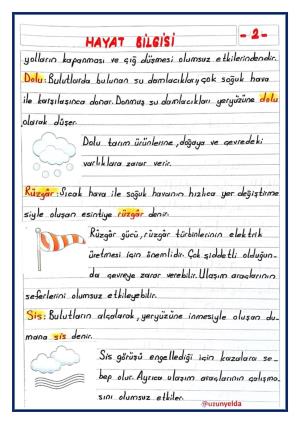 HAYAT BİLGİSİ
- 2 -
yolların kapanması ve çığ düşmesi olumsuz etkilerindendir.
Dolu: Bulutlarda bulunan su damlacıkları, çok soğuk hava
ile karşılaşınca donar. Donmuş su damlacıkları yeryüzüne dolu
olarak düşer.
Dolu tarım ürünlerine, doğaya ve çevredeki
varlıklara zarar verir.
Rüzgâr: Sıcak hava ile soğuk havanın hızlıca yer değiştirme
siyle oluşan esintiye rüzgâr denir.
Rüzgâr gücü, rüzgâr türbinlerinin elektrik
üretmesi için önemlidir. Çok şiddetli olduğun-
da çevreye zarar verebilir. Ulaşım araçlarının
seferlerini olumsuz etkileyebilir.
Sis: Bulutların alçalarak, yeryüzüne inmesiyle oluşan du-
mana sis denir.
Sis görüşü engellediği için kazalara se-
bep olur. Ayrıca ulaşım araçlarının çalışma-
sını olumsuz etkiler.
@uzunyelda